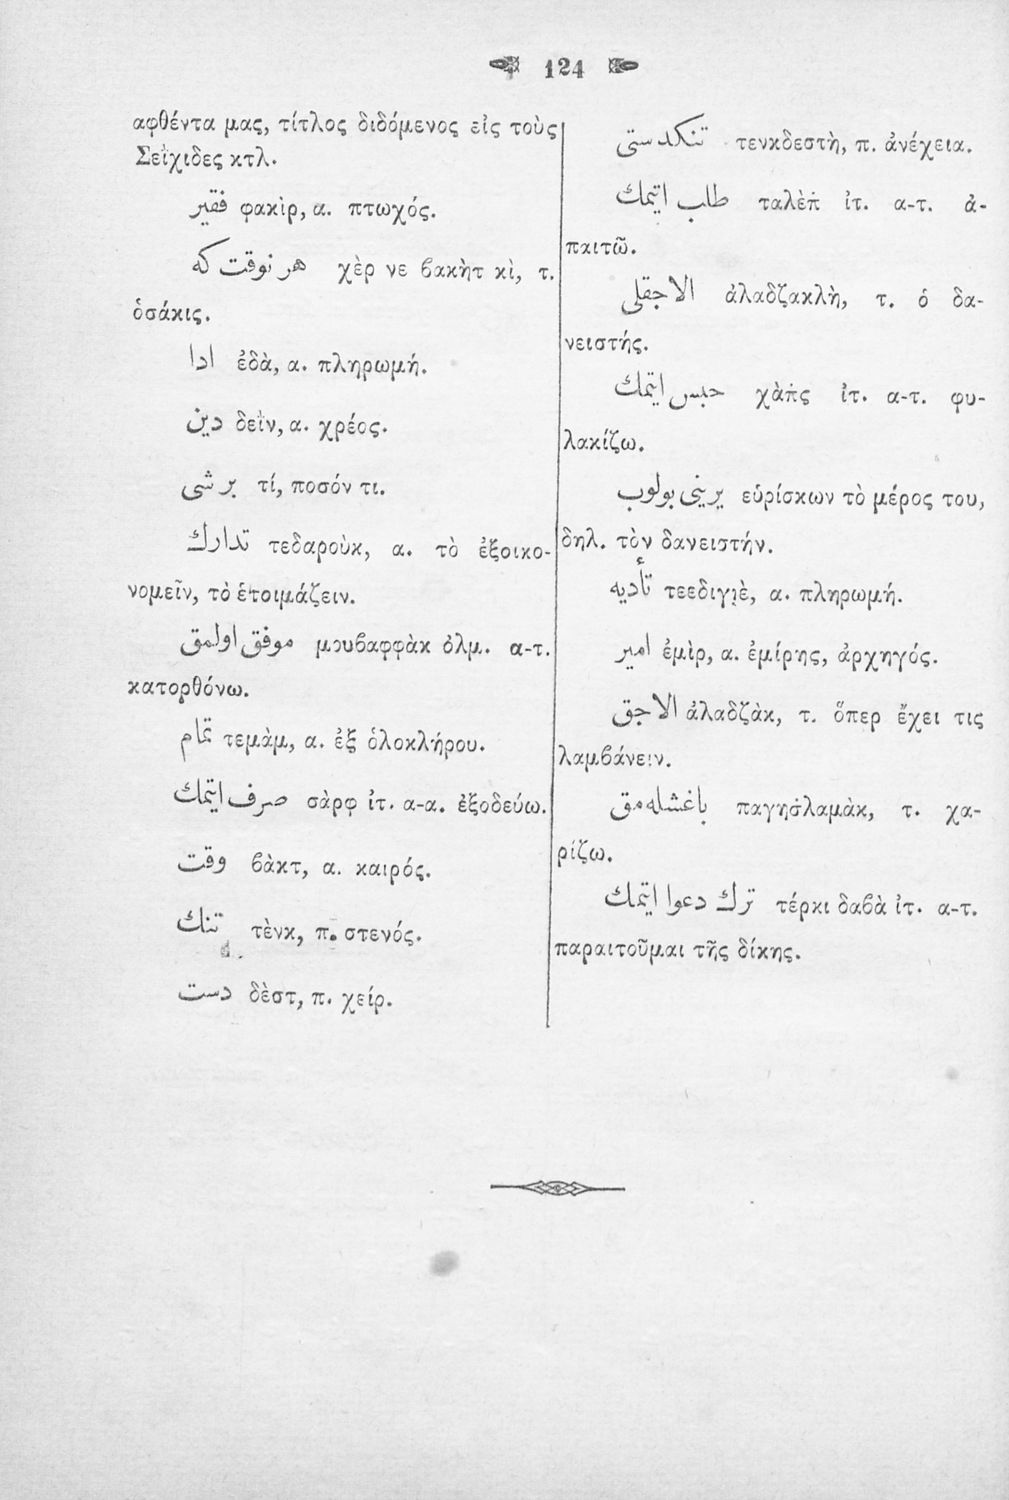 124
αφθέντα μας, τίτλος διδόμενος εἰς τοὺς
Σεΐχιδες κτλ.
فقير φακὶρ, α. πτωχός.
هر نوقت كه χὲρ νε βακὴτ κὶ, τ.
ὁσάκις.
ادا ἐδὰ, α. πληρωμή.
دين δεΐν, α. χρέος.
بر شى τί, ποσόν τι.
تدارك τεδαροὺκ, α. τὸ ἐξοικο-
νομεῖν, τὸ ἑτοιμάζειν.
موفق اولمق μουβαφφὰκ ὀλμ. α-τ.
κατορθόνω.
تمام τεμὰμ, α. ἐξ ὁλοκλήρου.
صرف ايتمك σὰρφ ἰτ. α-α. ἐξοδεύω.
وقت βὰκτ, α. καιρός.
تنك τὲνκ, π. στενός.
دست δὲστ, π. χείρ.
تنكدستى τενκδεστὴ, π. ἀνέχεια.
طلب ايتمك ταλὲπ ἰτ. α-τ. ἀ-
παιτῶ.
الاجقلى ἀλαδζακλὴ, τ. ὁ δα-
νειστής.
حبس ايتمك χὰπς ἰτ. α-τ. φυ-
λακίζω.
يرينى بولوب εὑρίσκων τὸ μέρος του,
δηλ. τὸν δανειστήν.
تأديه τεεδιγιὲ, α. πληρωμή.
امير ἐμὶρ, α. ἐμίρης, ἀρχηγός.
الاجق ἀλαδζὰκ, τ. ὅπερ ἔχει τις
λαμβάνειν.
باغشلهمق παγησλαμὰκ, τ. χα-
ρίζω.
ترك دعوا ايتمك τέρκι δαβὰ ἰτ. α-τ.
παραιτοῦμαι τῆς δίκης.